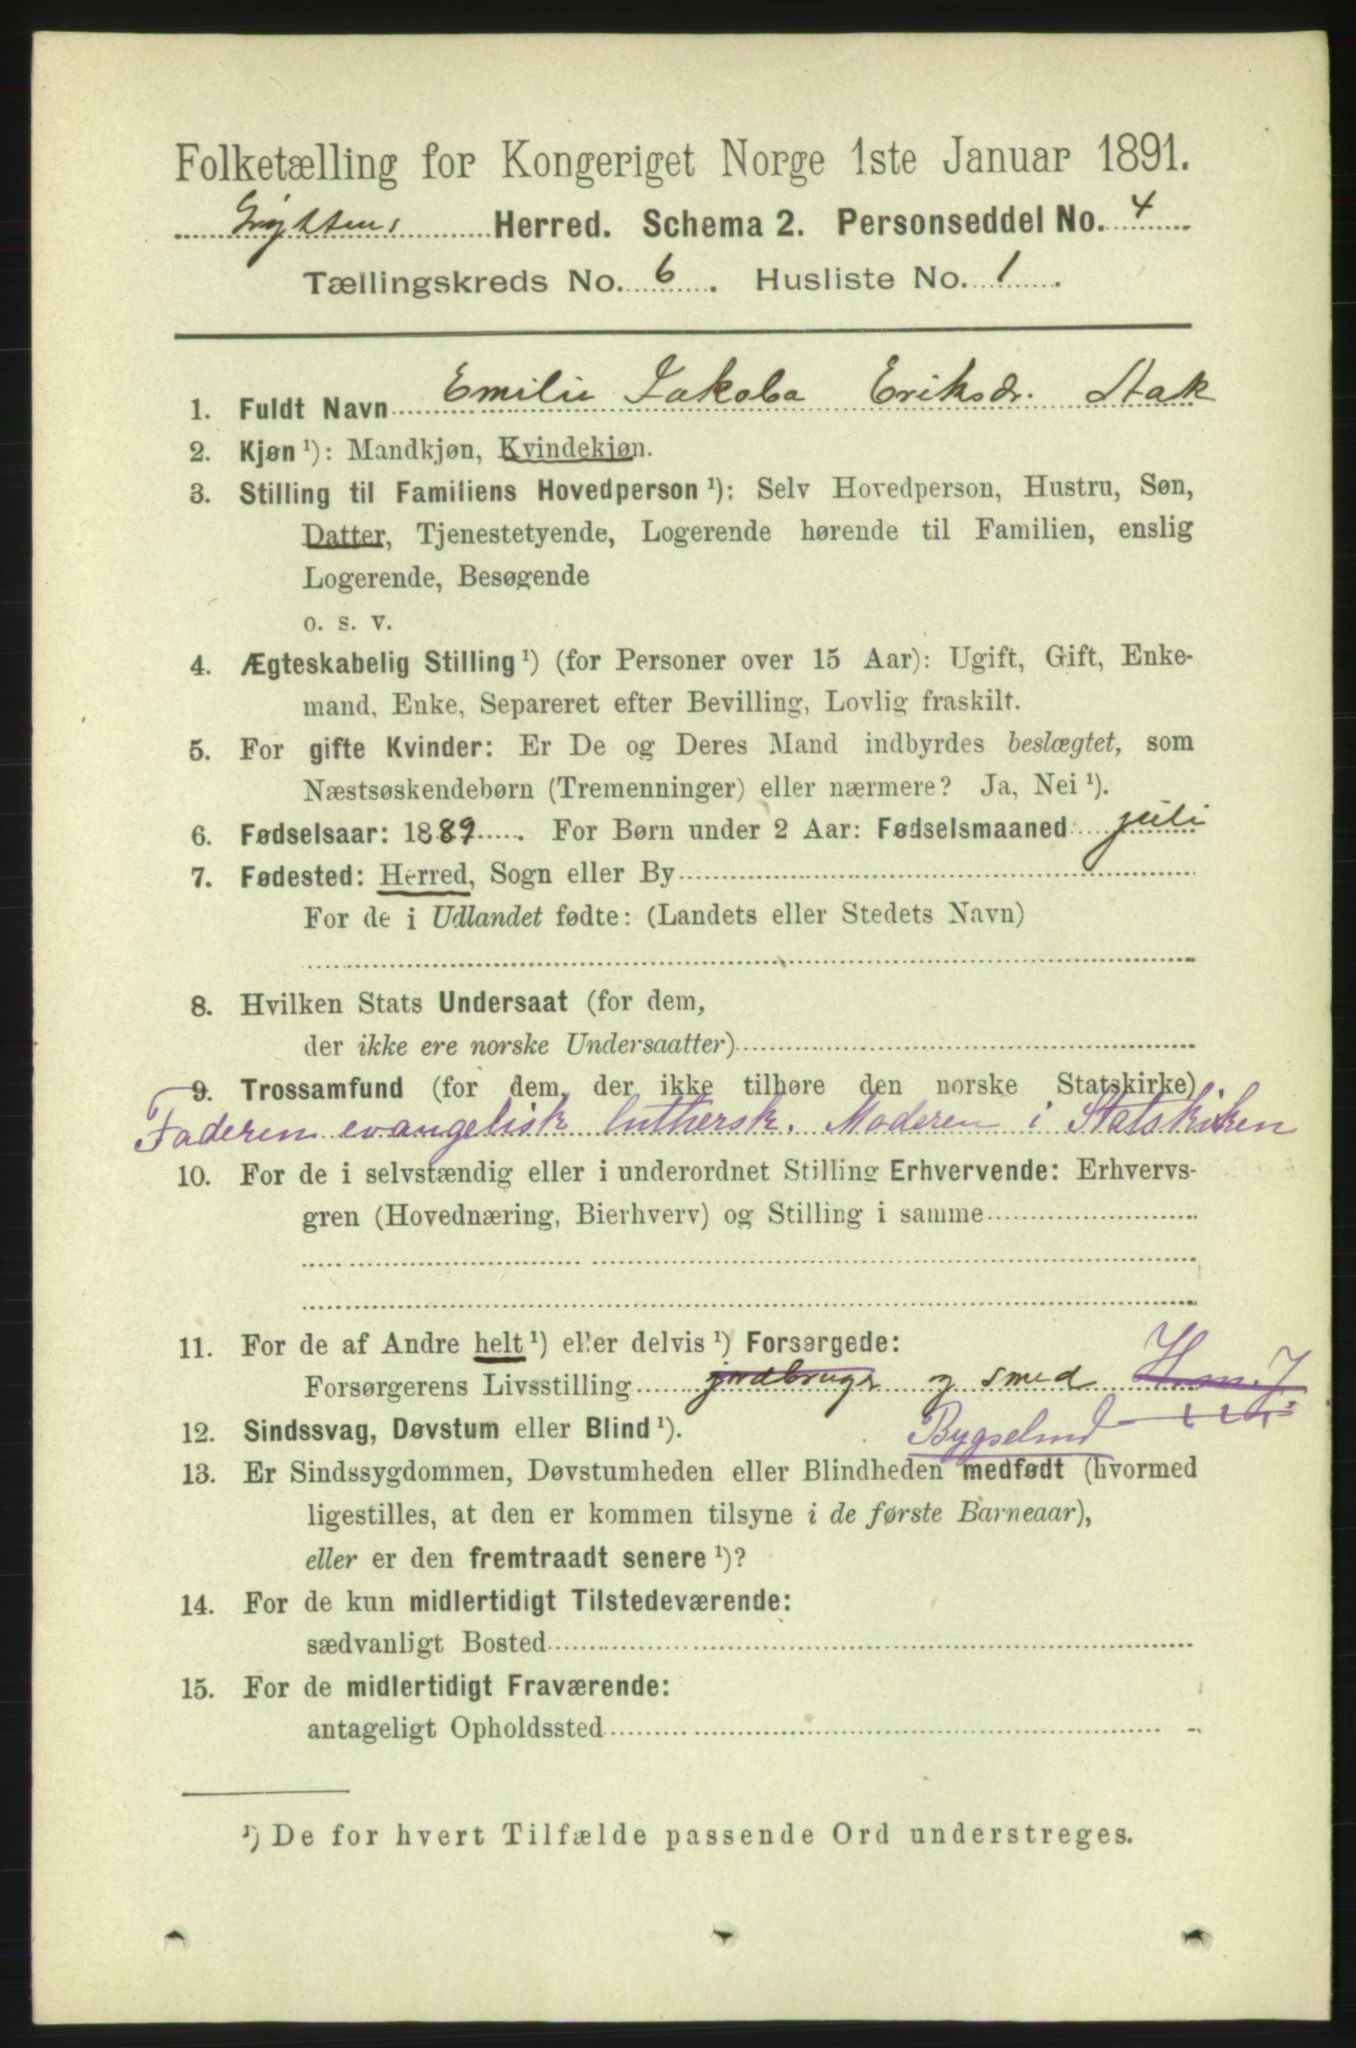 Folketælling for Kongeriget Norge 1ste Januar 1891.
Grytten Herred. Schema 2. Personseddel No. 4
Tællingskreds No. 6. Husliste No. 1.
1. Fuldt Navn Emilie Jakoba Eriksdr. Stak
2. Kjøn ¹): Mandkjøn, Kvindekjøn.
3. Stilling til Familiens Hovedperson ¹): Selv Hovedperson, Hustru, Søn,
Datter, Tjenestetyende, Logerende hørende til Familien, enslig
Logerende, Besøgende
o. s. v.
4. Ægteskabelig Stilling ¹) (for Personer over 15 Aar): Ugift, Gift, Enke-
mand, Enke, Separeret efter Bevilling, Lovlig fraskilt.
5. For gifte Kvinder: Er De og Deres Mand indbyrdes beslægtet, som
Næstsøskendebørn (Tremenninger) eller nærmere? Ja, Nei ¹).
6. Fødselsaar: 1889. For Børn under 2 Aar: Fødselsmaaned juli
7. Fødested: Herred, Sogn eller By
For de i Udlandet fødte: (Landets eller Stedets Navn)
8. Hvilken Stats Undersaat (for dem,
der ikke ere norske Undersaatter)
9. Trossamfund (for dem, der ikke tilhøre den norske Statskirke)
Faderen evangelisk luthersk. Moderen i Statskirken
10. For de i selvstændig eller i underordnet Stilling Erhvervende: Erhvervs-
gren (Hovednæring, Bierhverv) og Stilling i samme
11. For de af Andre helt ¹) eller delvis ¹) Forsørgede:
Forsørgerens Livsstilling jordbruger og smed
Bygselmd
12. Sindssvag, Døvstum eller Blind ¹).
13. Er Sindssygdommen, Døvstumheden eller Blindheden medfødt (hvormed
ligestilles, at den er kommen tilsyne i de første Barneaar),
eller er den fremtraadt senere ¹)?
14. For de kun midlertidigt Tilstedeværende:
sædvanligt Bosted
15. For de midlertidigt Fraværende:
antageligt Opholdssted
¹) De for hvert Tilfælde passende Ord understreges.